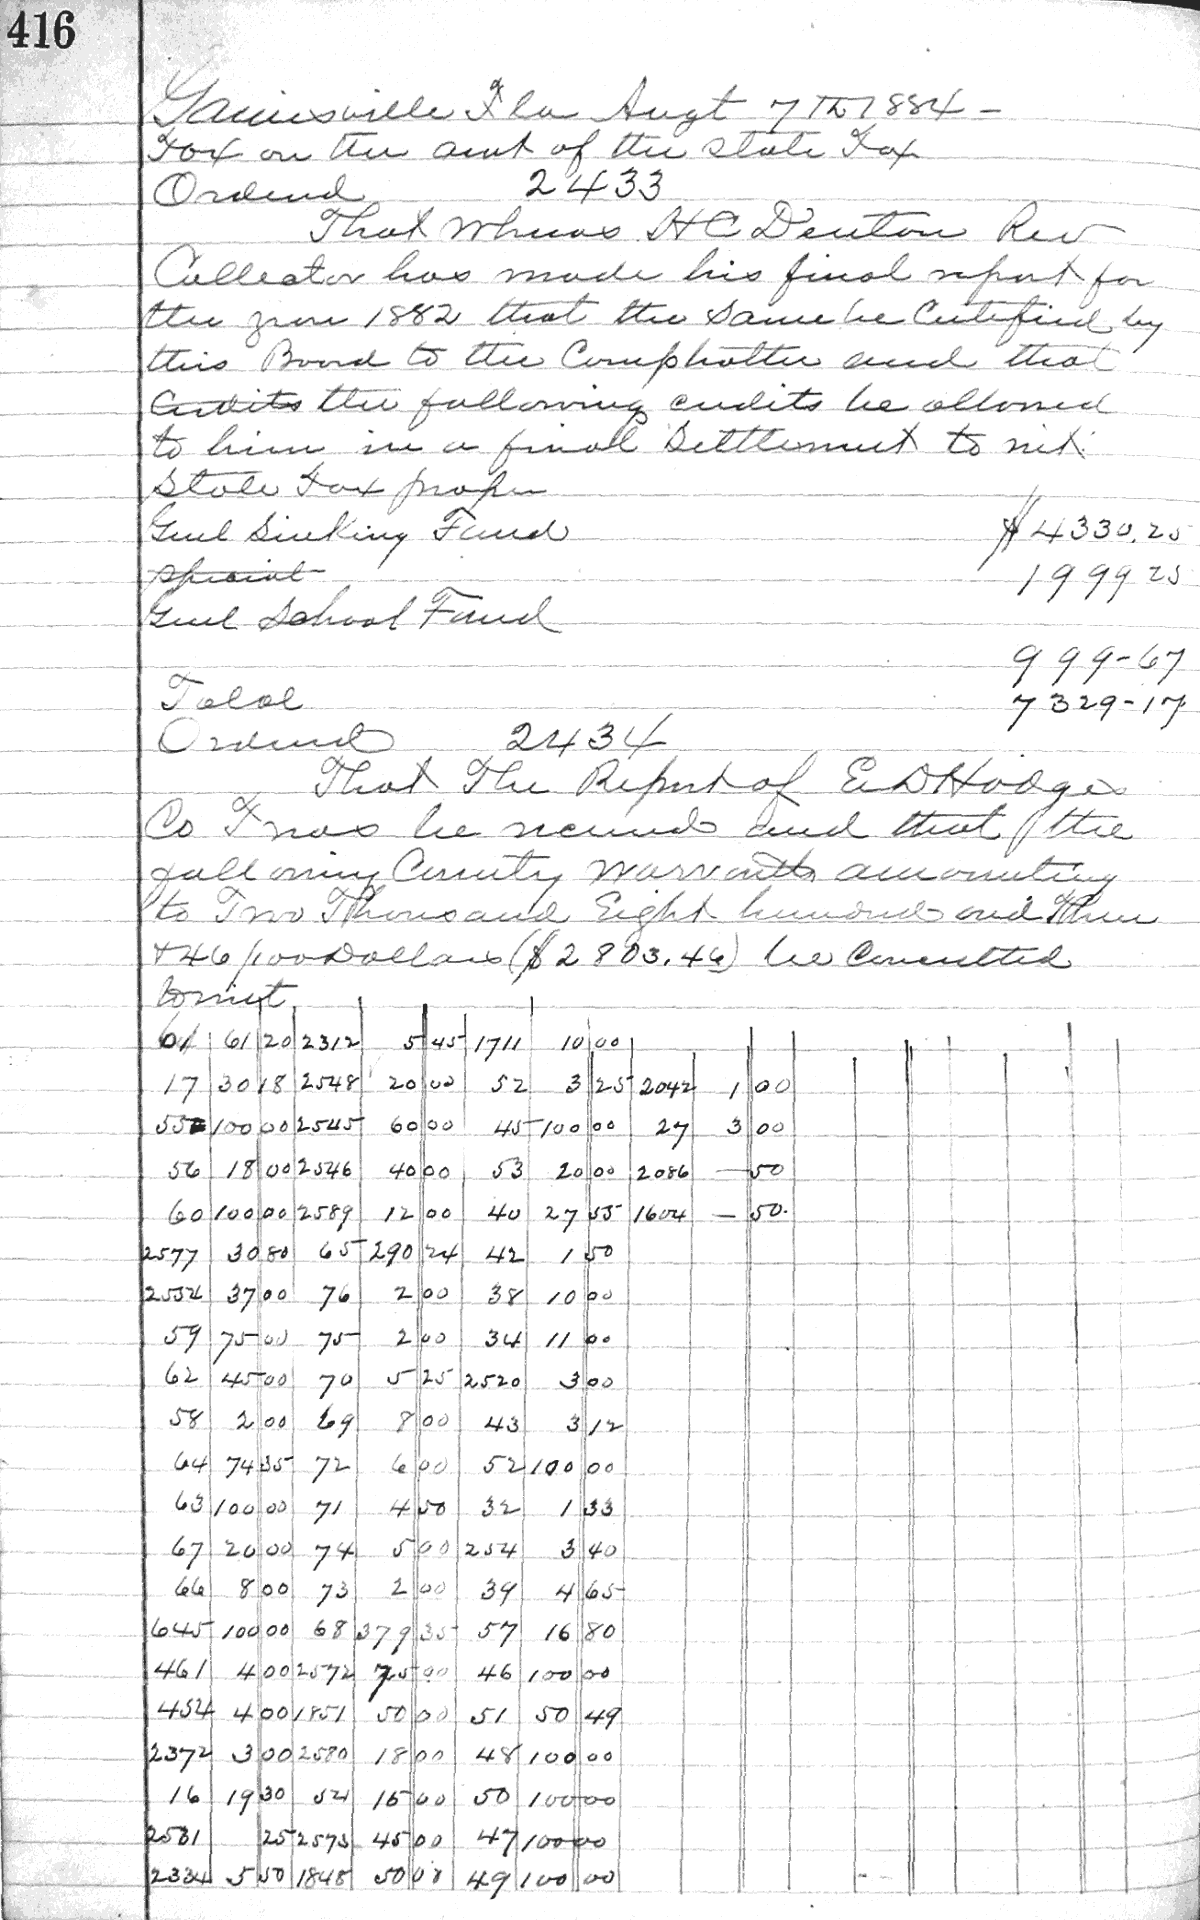 416
Gainesville Fla Augt 7th 1884 -
Tax on the amt of the State Tax
Ordered 2433
That Whereas H C Denton Rev
Collector has made his final report for
the year 1882 that the Same be Certified by
this Board to the Comptroller and that
Credits the following credits be allowed
to him in a final Settlement to wit:
State Tax proper
Genl Sinking Fund $4330.25
Special 1999 25
Genl School Fund
999-67
Total 7329-17
Ordered 2434
That The Report of E D Hodges
Co Treas be received and that the
following County Warrants amounting
to Two Thousand Eight hundred and Three
+ 46/100 Dollars ($2803.46) be Cancelled
to wit
61 61 20 2312 5 45 1711 10 00
17 30 18 2548 20 00 52 3 25 2042 1 00
55 100 00 2545 60 00 45 100 00 27 3 00
56 18 00 2546 40 00 53 20 00 2086 — 50
60 100 00 2589 12 00 40 27 55 1604 — 50.
2577 30 80 65 290 24 42 1 50
2554 37 00 76 2 00 38 10 00
59 75 00 75 2 00 34 11 00
62 45 00 70 5 25 2520 3 00
58 2 00 69 8 00 43 3 12
64 74 35 72 6 00 52 100 00
63 100 00 71 4 50 32 1 33
67 20 00 74 5 00 254 3 40
66 8 00 73 2 00 39 4 65
645 100 00 68 379 35 57 16 80
461 4 00 2572 75 00 46 100 00
454 4 00 1851 50 00 51 50 49
2372 3 00 2580 18 00 48 100 00
16 19 30 54 15 00 50 100 00
2581 25 2573 45 00 47 100 00
2334 5 50 1848 50 00 49 100 00